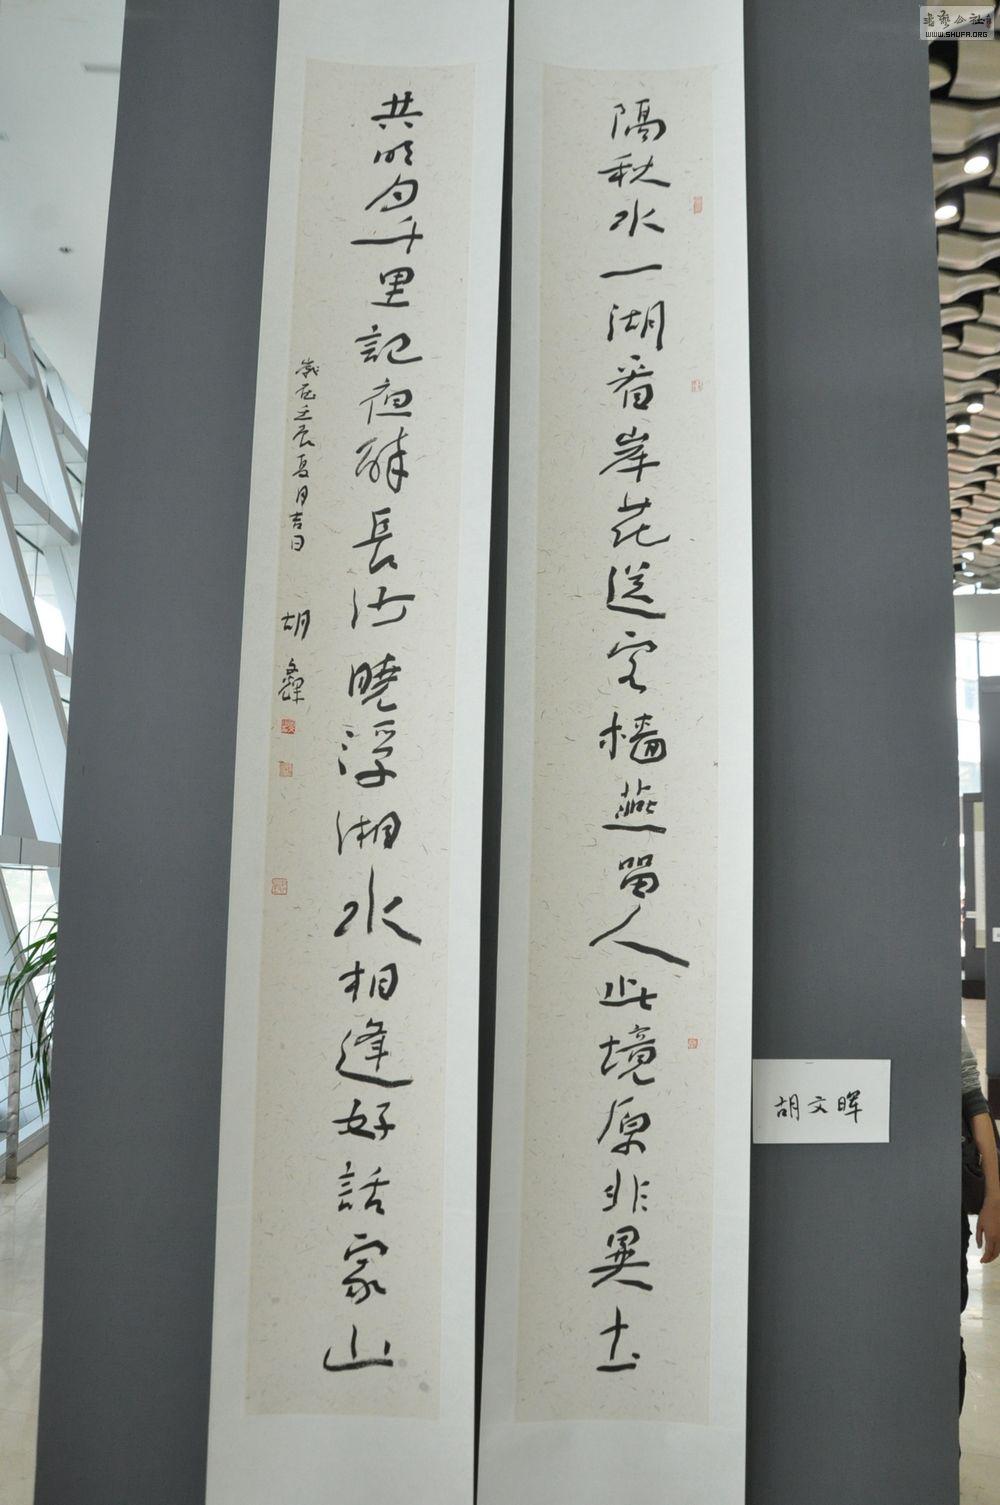 隔秋水一湖看岸花送客檣燕留人此境原非異土
共明月千里記夜醉長沙曉浮湘水相逢好話家山
歲在壬辰夏月吉日
胡文暉
胡文晖
書藝公社
WWW.SHUFA.ORG